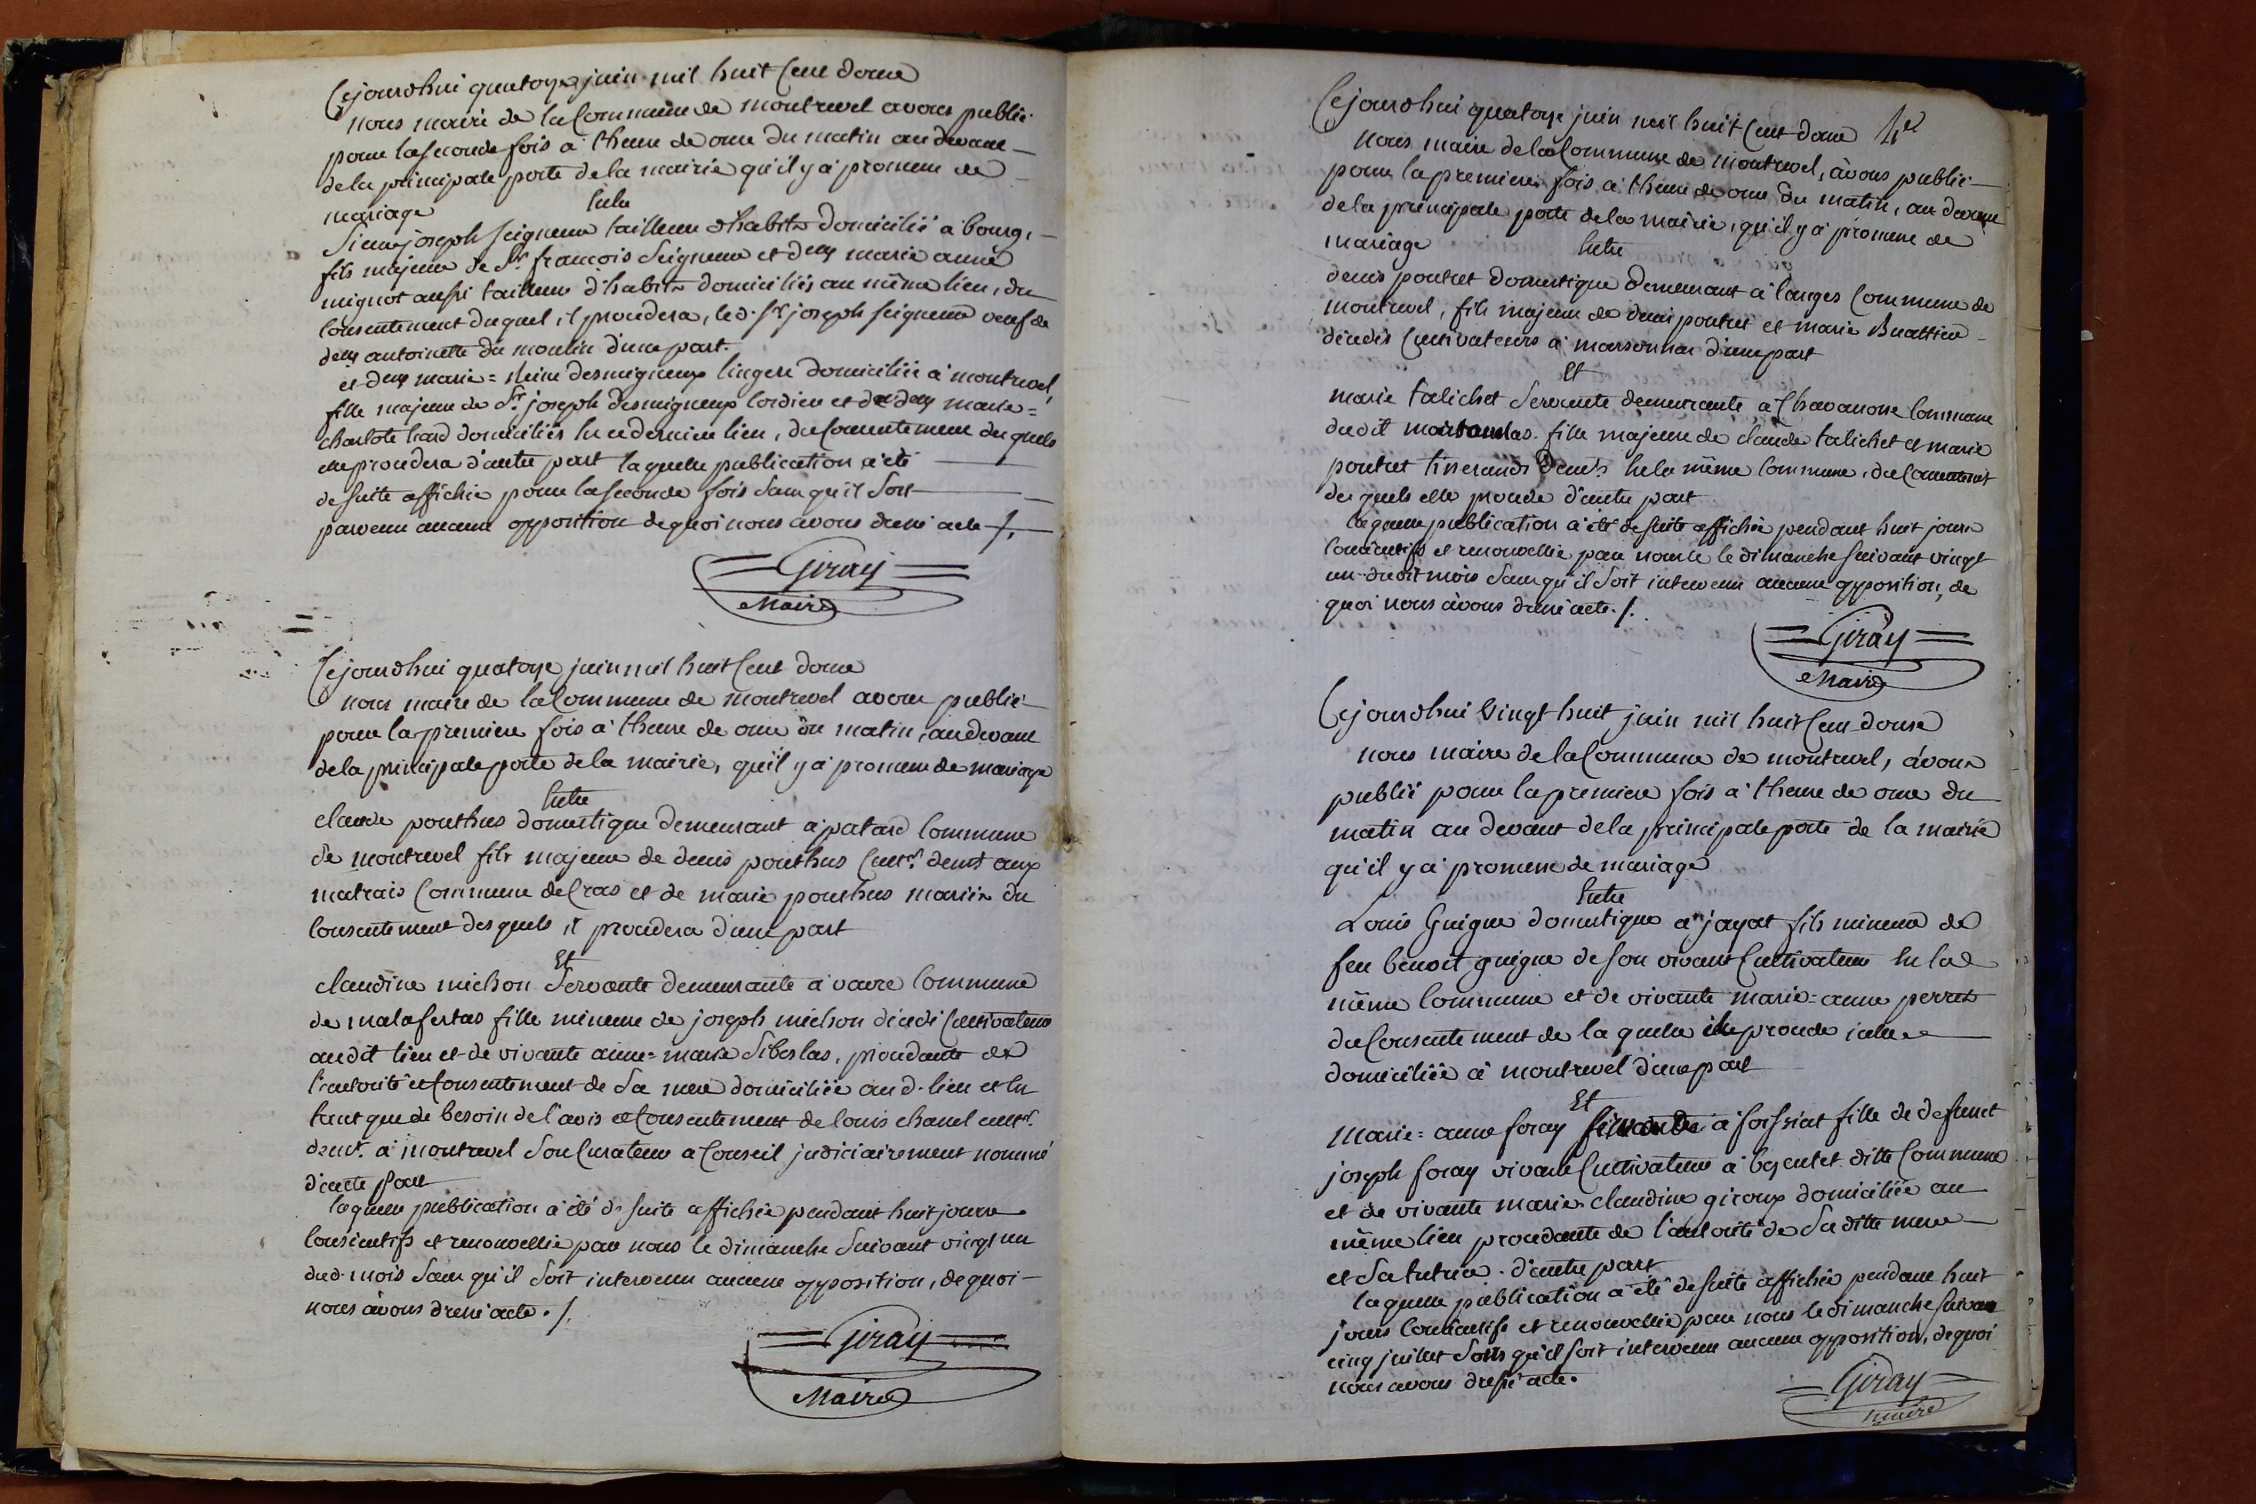 Cejourdhui quatorze juin mil huit Cent douze
nous maire de la Commune de montrevel avons publié
pour la seconde fois à l'heure de onze du matin au devant
de la principale porte de la mairie qu'il y a promesse de
mariage
Entre
Sieur joseph seigneur tailleur d'habits domicilié à bourg,
fils majeur de Sr. francois Seigneur et delle marie anne
mignot aussi tailleur d'habits domiciliés au même lieu, du
consentement duquel, il procedera, le d. Sr joseph seigneur veuf de
delle antoinette du moulin d'une part.
et delle marie = Reine desmigneux lingere domiciliée à montrevel
fille majeure de Sr. joseph desmigneux cordier et de delle marie =
charlote domiciliés en ce dernier lieu, du Consentement desquels
elle procedera d'autre part laquelle publication a été
de suite affichée pour la seconde fois sans qu'il soit
parvenu aucune opposition de quoi nous avons dressé acte /.
Giray
Maire
Cejourdhui quatorze juin mil huit Cent douze
nous maire de la Commune de montrevel avons publié
pour la premiere fois à l'heure de onze du matin, au devant
de la principale porte de la mairie, qu'il y a promesse de mariage
Entre
claude pouthus domestique demeurant à patard Commune
de montrevel fils majeur de denis pouthus Cultr. demt aux
matrais Commune de Cras et de marie pouthus mariés du
consentement desquels il procedera d'une part
Et
claudine michon Servante demeurante à vavre Commune
de malafretas fille mineure de joseph michon décédé Cultivateur
audit lieu et de vivante anne = marie Siboslas, procedante de
l'autorité et Consentement de sa mere domiciliée au d. lieu et en
tant que de besoin de l'avis et Consentement de louis chanel cultr.
demt. à montrevel Son Curateur a Conseil judiciairement nommé
d'autre part
laquelle publication a été de suite affichée pendant huit jours
consécutifs et renouvellée par nous le dimanche Suivant vingt un
dud. mois sans qu'il soit intervenu aucune opposition, de quoi
nous avons dressé acte. /.
Giray
Maire
Cejourdhui quatorze juin mil huit Cent douze
nous maire de la Commune de montrevel, avons publié
pour la premiere fois à l'heure de onze du matin, au devant
de la principale porte de la mairie, qu'il y a promesse de
mariage
Entre
denis poutret domestique demeurant à langes Commune de
montrevel, fils majeur de denis poutret et marie Buattier
décédés Cultivateurs à marsonnas d'une part
Et
marie talichet Servante demeurante à Chavanosse Commune
dudit fille majeure de claude talichet et marie
poutret tisserands demts. en la même Commune, du Consentement
desquels elle procede d'autre part
laquelle publication a été de suite affichée pendant huit jours
consécutifs et renouvellée par nous le dimanche suivant vingt
un dudit mois sans qu'il soit intervenu aucune opposition, de
quoi nous avons dressé acte. /.
Giray
Maire
Cejourdhui Vingt huit juin mil huit Cent douze
nous maire de la Commune de montrevel, avons
publié pour la premiere fois à l'heure de onze du
matin au devant de la principale porte de la mairie
qu'il y a promesse de mariage
Entre
Louis Guigue domestique à jayat fils mineur de
feu benoit guigue de son vivant Cultivateur en la
même Commune et de vivante marie = anne perret
du Consentement de laquelle il procede icelle
domiciliée à montrevel d'une part
Et
Marie = anne foray à foissiat fille de defunct
joseph foray vivant Cultivateur à dite Commune
et de vivante marie claudine giroux domiciliée au
même lieu procedante de l'autorité de Sa dite mere
et Sa tutrice. d'autre part
laquelle publication a été de suite affichée pendant huit
jours consécutifs et renouvellée par nous le dimanche suivant
cinq juillet sans qu'il soit intervenu aucune opposition, de quoi
nous avons dressé acte.
Giray
maire